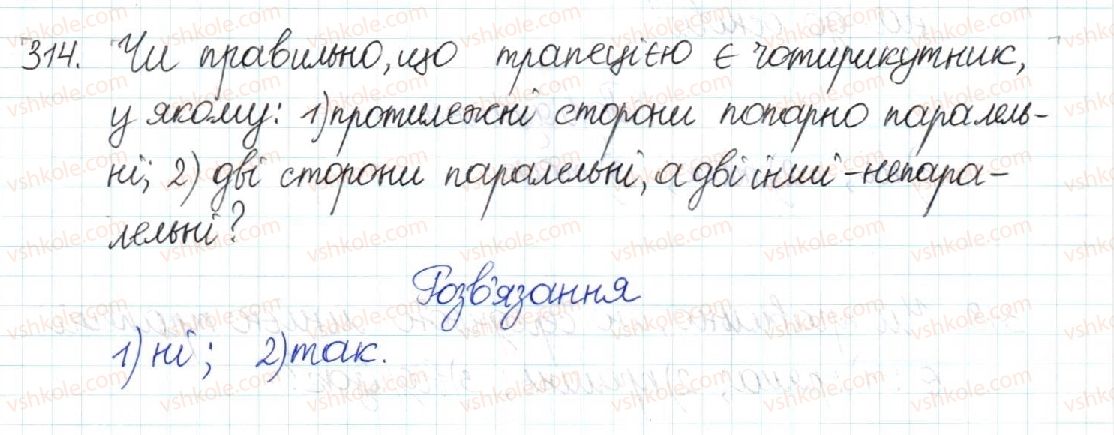 314. Чи правильно, що трапецією є чотирикутник,
у якому: 1) протилежні сторони попарно паралель-
ні; 2) дві сторони паралельні, а дві інші - непара-
лельні?
Розв'язання
1) ні; 2) так.
vshkole.com